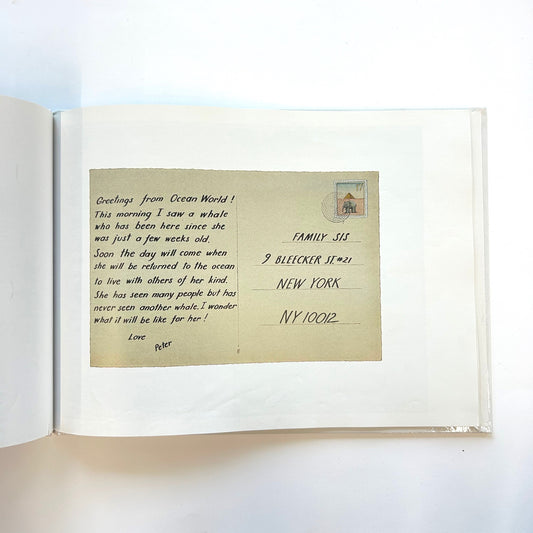 Greetings from Ocean World!
This morning I saw a whale
who has been here since she
was just a few weeks old.
Soon the day will come when
she will be returned to the ocean
to live with others of her kind.
She has seen many people but has
never seen another whale. I wonder
what it will be like for her!
Love
Peter
FAMILY SIS
9 BLEECKER ST. #21
NEW YORK
NY 10012